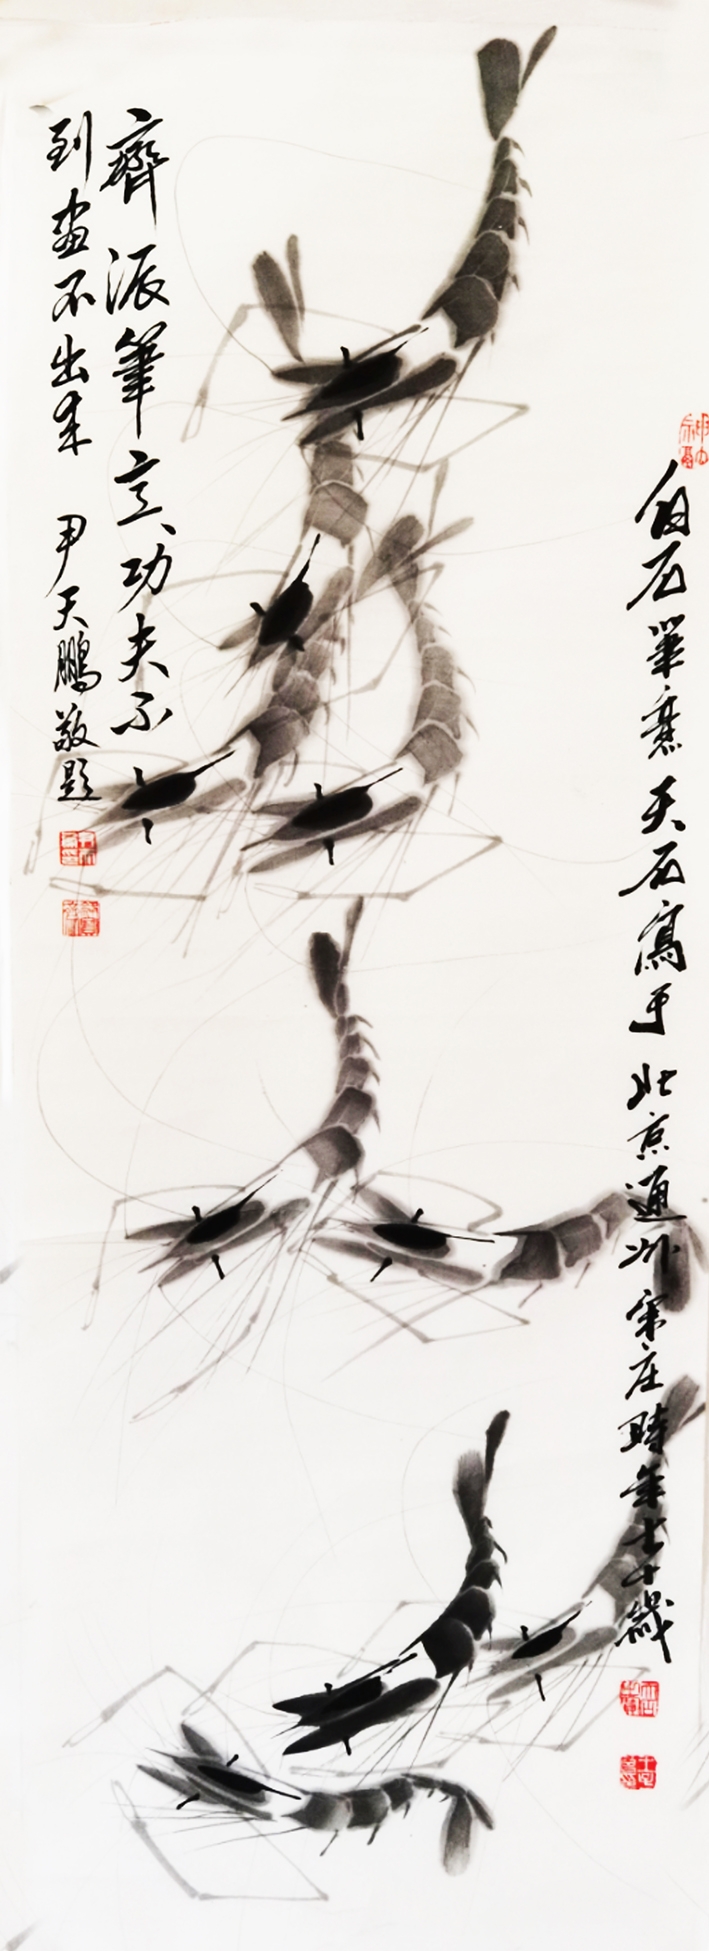 白石筆意天石寫于北京通州宋庄時年七十歲
齊派筆玄功夫不
到畫不出来 尹天鵬敬題